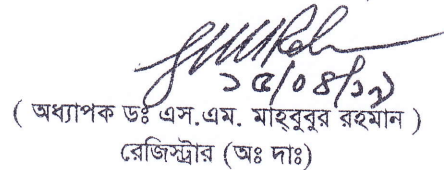 ১৫/০৪/১৯
( অধ্যাপক ডঃ এস.এম. মাহ্‌বুবুর রহমান )
রেজিস্ট্রার (অঃ দাঃ)